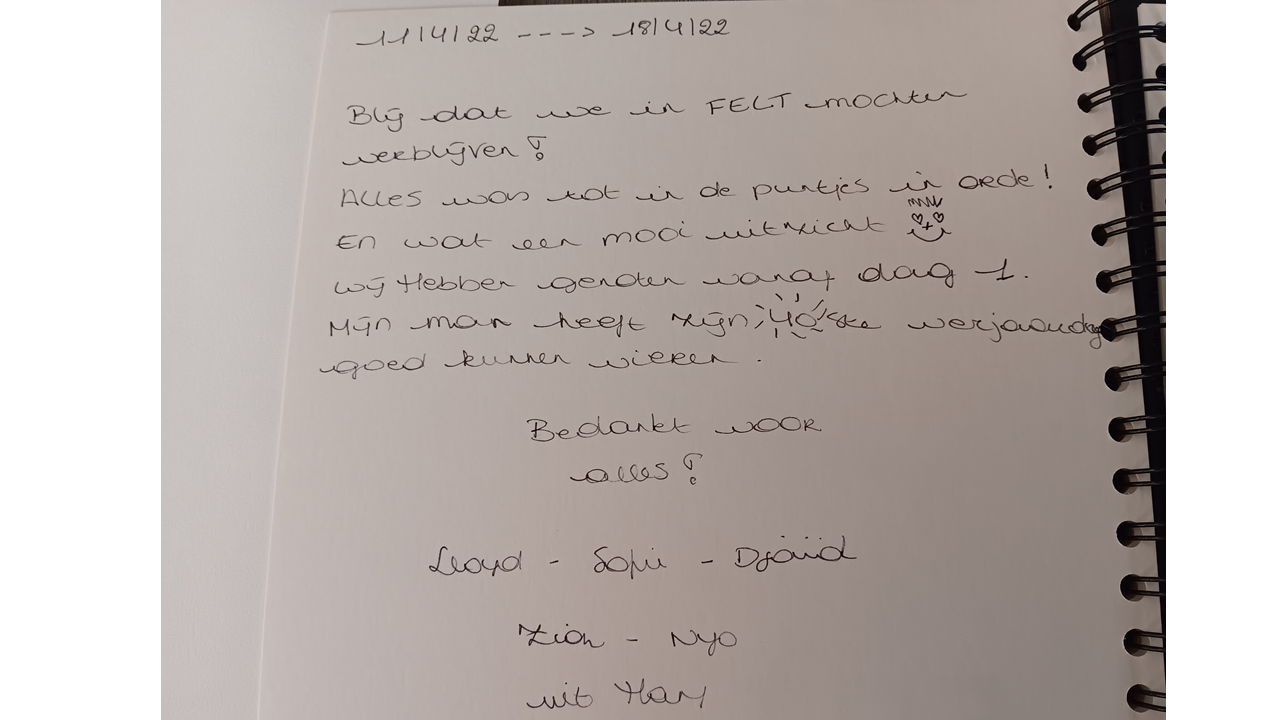 11/4/22 ----> 18/4/22
Blij dat we in FELT mochten
verblijven!
Alles was tot in de puntjes in orde!
En wat een mooi uitzicht
Wij Hebben genoten vanaf dag 1.
Mijn man heeft zijn 40ste verjaardag
goed kunnen vieren.
Bedankt voor
alles!
Lloyd - Sofie - Djaïd
Zion - Nyo
uit